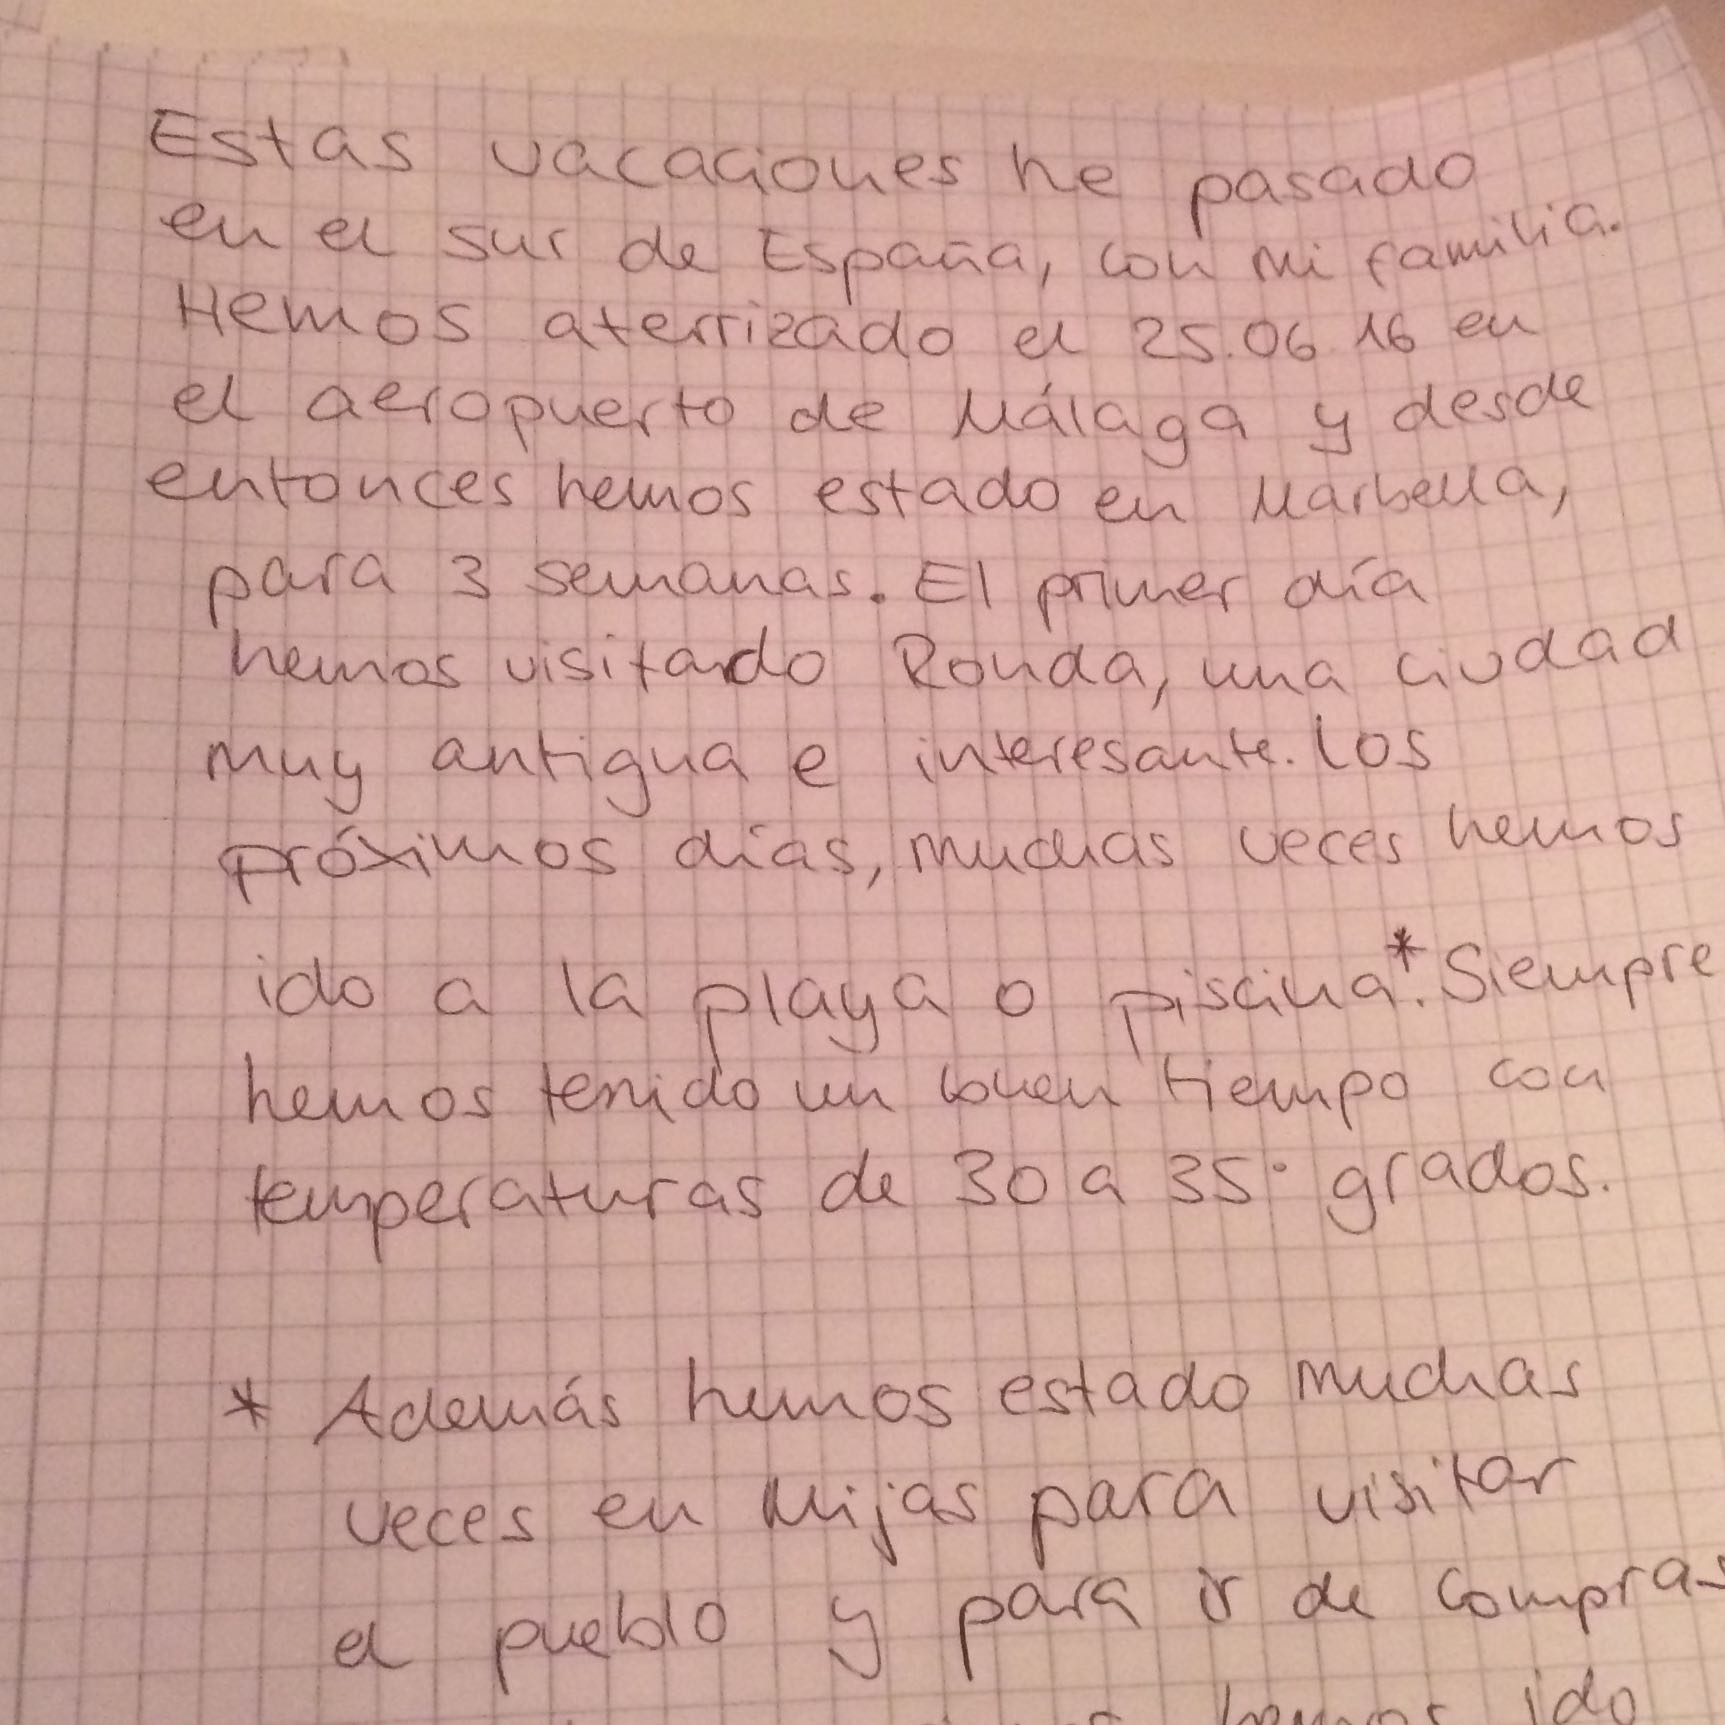 Estas vacaciones he pasado
en el sur de España, con mi familia.
Hemos aterrizado el 25.06.16 en
el aeropuerto de Málaga y desde
entonces hemos estado en Marbella,
para 3 semanas. El primer día
hemos visitado Ronda, una ciudad
muy antigua e interesante. Los
próximos días, muchas veces hemos
ido a la playa o piscina*. Siempre
hemos tenido un buen tiempo con
temperaturas de 30 a 35° grados.
* Además hemos estado muchas
veces en Mijas para visitar
el pueblo y para ir de compras
hemos ido